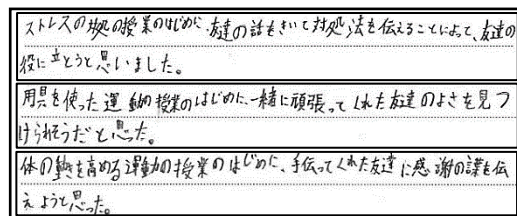 ストレスの対処の授業のはじめに、友達の話をきいて対処法を伝えることによって、友達の
役に立とうと思いました。
用具を使った運動の授業のはじめに、一緒に頑張ってくれた友達のよさを見つ
けられそうだと思った。
体の動きを高める運動の授業のはじめに、手伝ってくれた友達に感謝の言葉を伝
えようと思った。